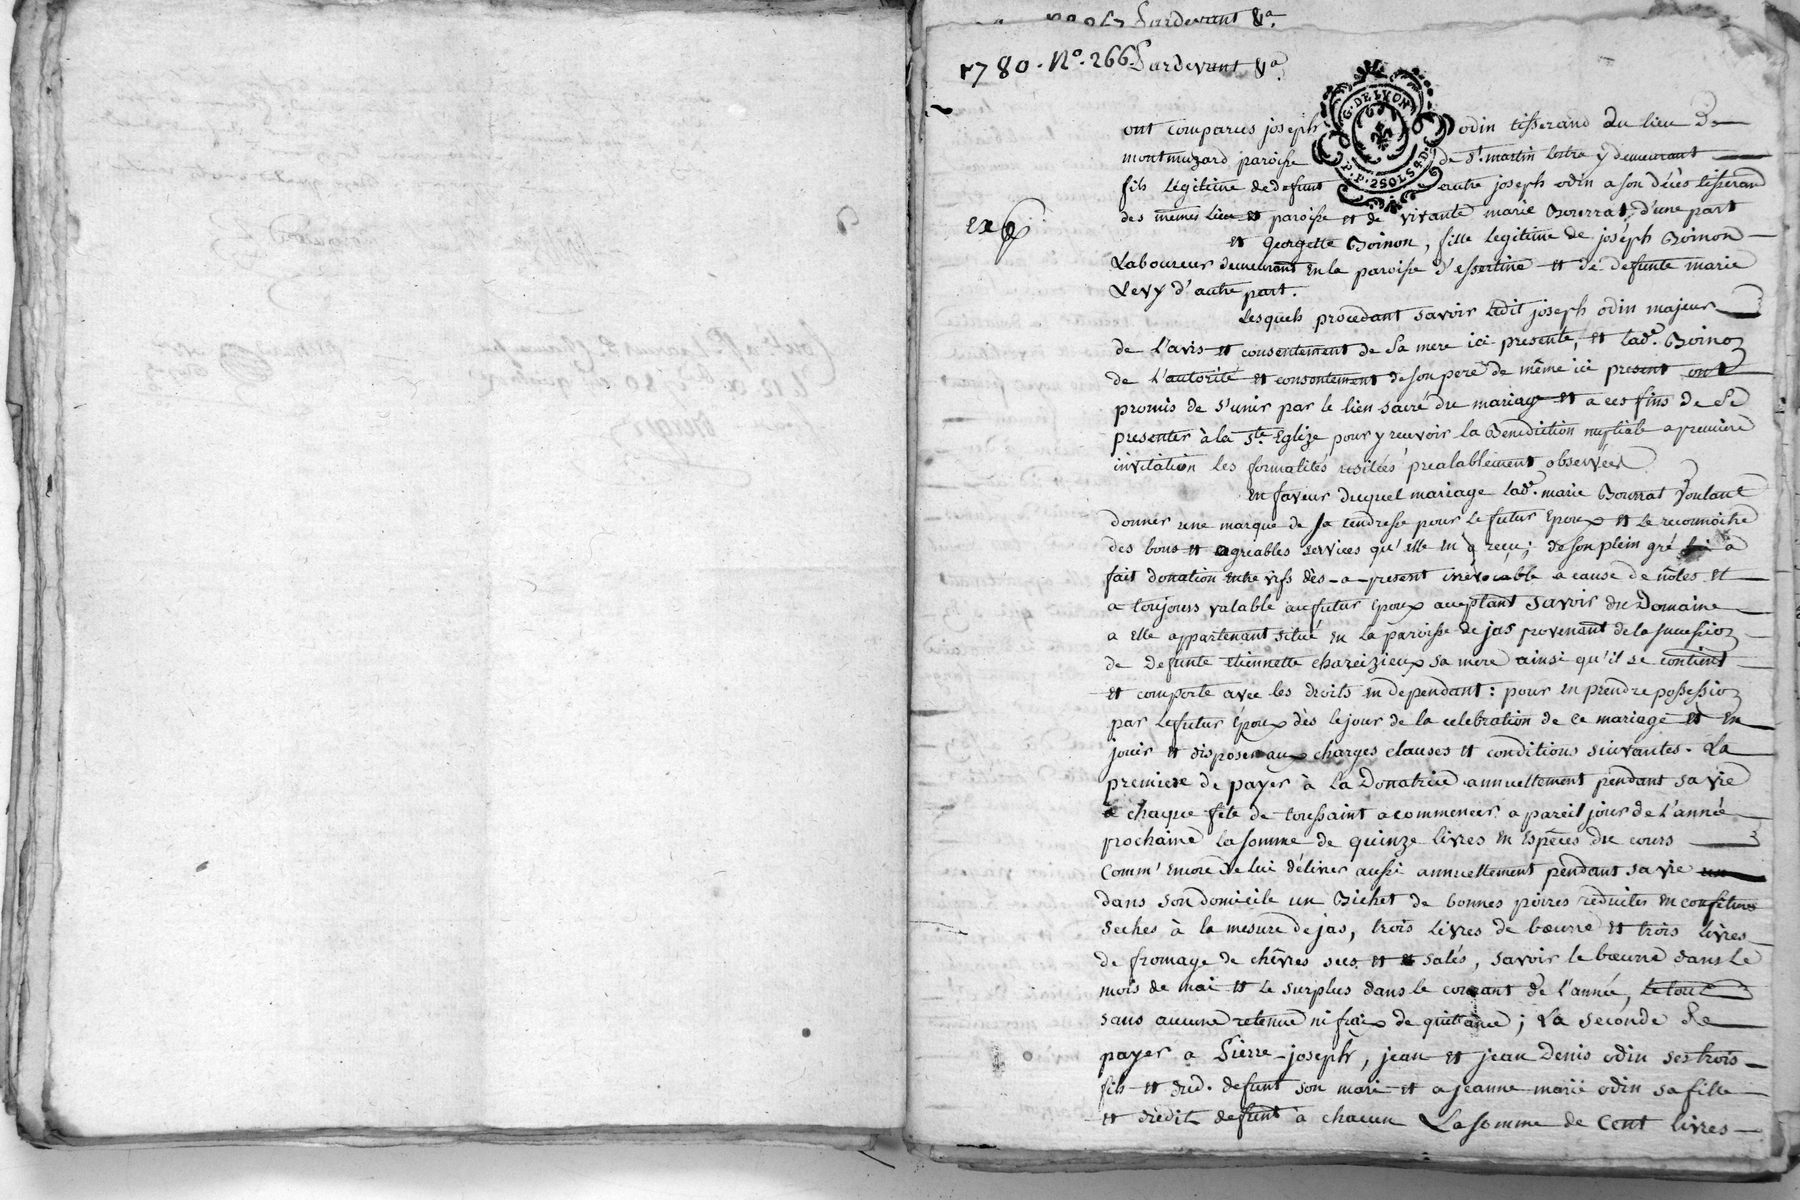 Pardevant &a
1780. No. 266. Pardevant &a
G. DE LYON
P. P. 2 SOLS 4 D.
exp
ont comparus joseph odin tisserand du lieu de
montmuzard paroisse de st. martin lestra y demeurant
fils légitime de defunt autre joseph odin a son décès tisserand
des mêmes lieu et paroisse et de vivante marie Bourrat, d'une part
et Georgette Boinon, fille legitime de joséph Boinon
Laboureur demeurant en la paroisse d'essertine et de defunte marie
Levy d'autre part.
Lesquels procedant savoir Ledit joseph odin majeur
de l'avis et consentement de sa mere ici presente, et lade. Boinon
de l'autorité et consentement de son pere de même ici present ont
promis de s'unir par le lien sacré du mariage et a ces fins de se
presenter à la ste Eglize pour y recevoir la Benediction nuptiale a premiere
invitation les formalités préalablement observées
En faveur duquel mariage lade. marie Bourrat voulant
donner une marque de sa tendresse pour le futur Epoux et le reconnoitre
des bons et agréables services qu'elle en a reçu; de son plein gré a
fait donation entre vifs dès-a-present irrévocable a cause de nôces et
a toujours valable au futur Epoux acceptant savoir du Domaine
a elle appartenant situé en la paroisse de jas provenant de la succession
de defunte etiennette chareizieux sa mere ainsi qu'il se contient
et comporte avec les droits en dependant: pour en prendre possession
par le futur époux dès le jour de la celebration de ce mariage et en
jouir et disposer aux charges clauses et conditions suivantes. La
premiere de payer à la Donatrice annuellement pendant sa vie
à chaque fête de toussaint a commencer a pareil jour de l'année
prochaine la somme de quinze livres en espèces du cours
Comm' encore de lui délivrer aussi annuellement pendant sa vie
dans son domicile un Bichet de bonnes poires reduites en confitures
seches à la mesure de jas, trois Livres de bœurre et trois Livres
de fromage de chêvres secs et salés, savoir le bœurre dans le
mois de mai et le surplus dans le courant de l'année, le tout
sans aucune retenue ni frais de quittance; La seconde de
payer a Pierre-joseph, jean et jean Denis odin ses trois
fils et dud. defunt son mari et a jeanne marie odin sa fille
et dudit defunt à chacun La somme de Cent livres